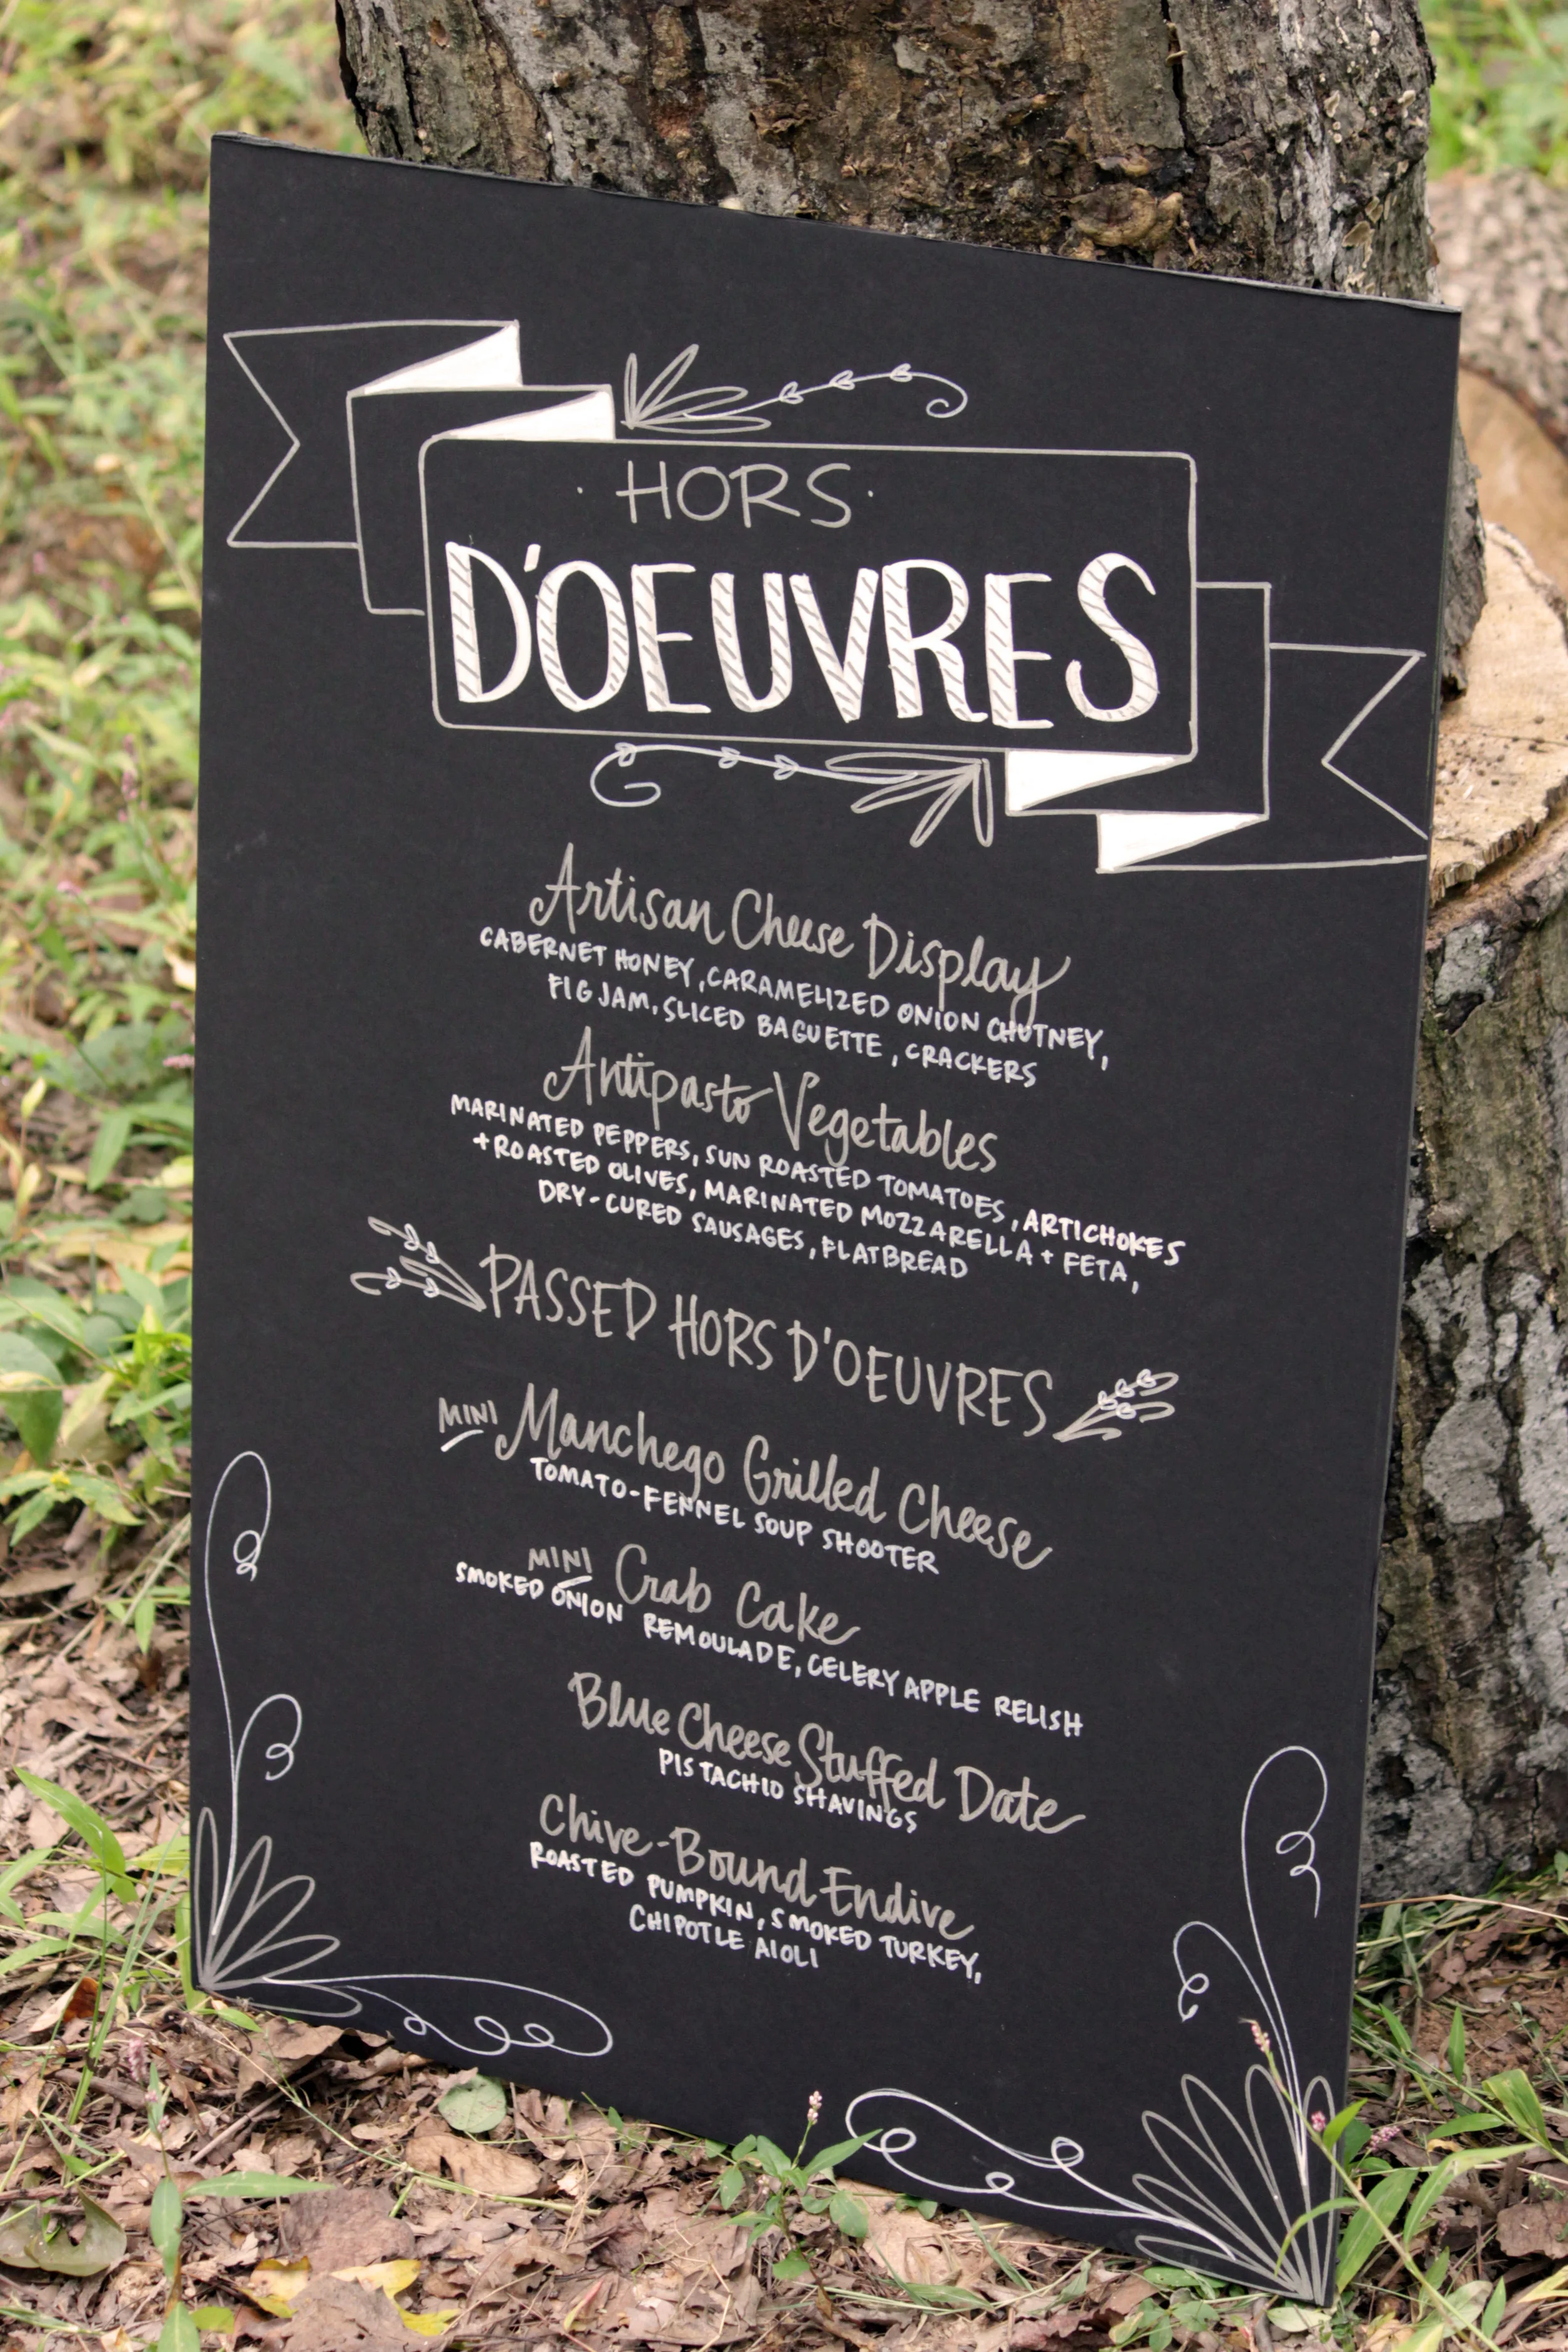 · HORS ·
D'OEUVRES
Artisan Cheese Display
CABERNET HONEY, CARAMELIZED ONION CHUTNEY,
FIG JAM, SLICED BAGUETTE, CRACKERS
Antipasto Vegetables
MARINATED PEPPERS, SUN ROASTED TOMATOES, ARTICHOKES
+ ROASTED OLIVES, MARINATED MOZZARELLA + FETA,
DRY-CURED SAUSAGES, FLATBREAD
PASSED HORS D'OEUVRES
MINI Manchego Grilled Cheese
TOMATO-FENNEL SOUP SHOOTER
MINI Crab Cake
SMOKED ONION REMOULADE, CELERY APPLE RELISH
Blue Cheese Stuffed Date
PISTACHIO SHAVINGS
Chive-Bound Endive
ROASTED PUMPKIN, SMOKED TURKEY,
CHIPOTLE AIOLI